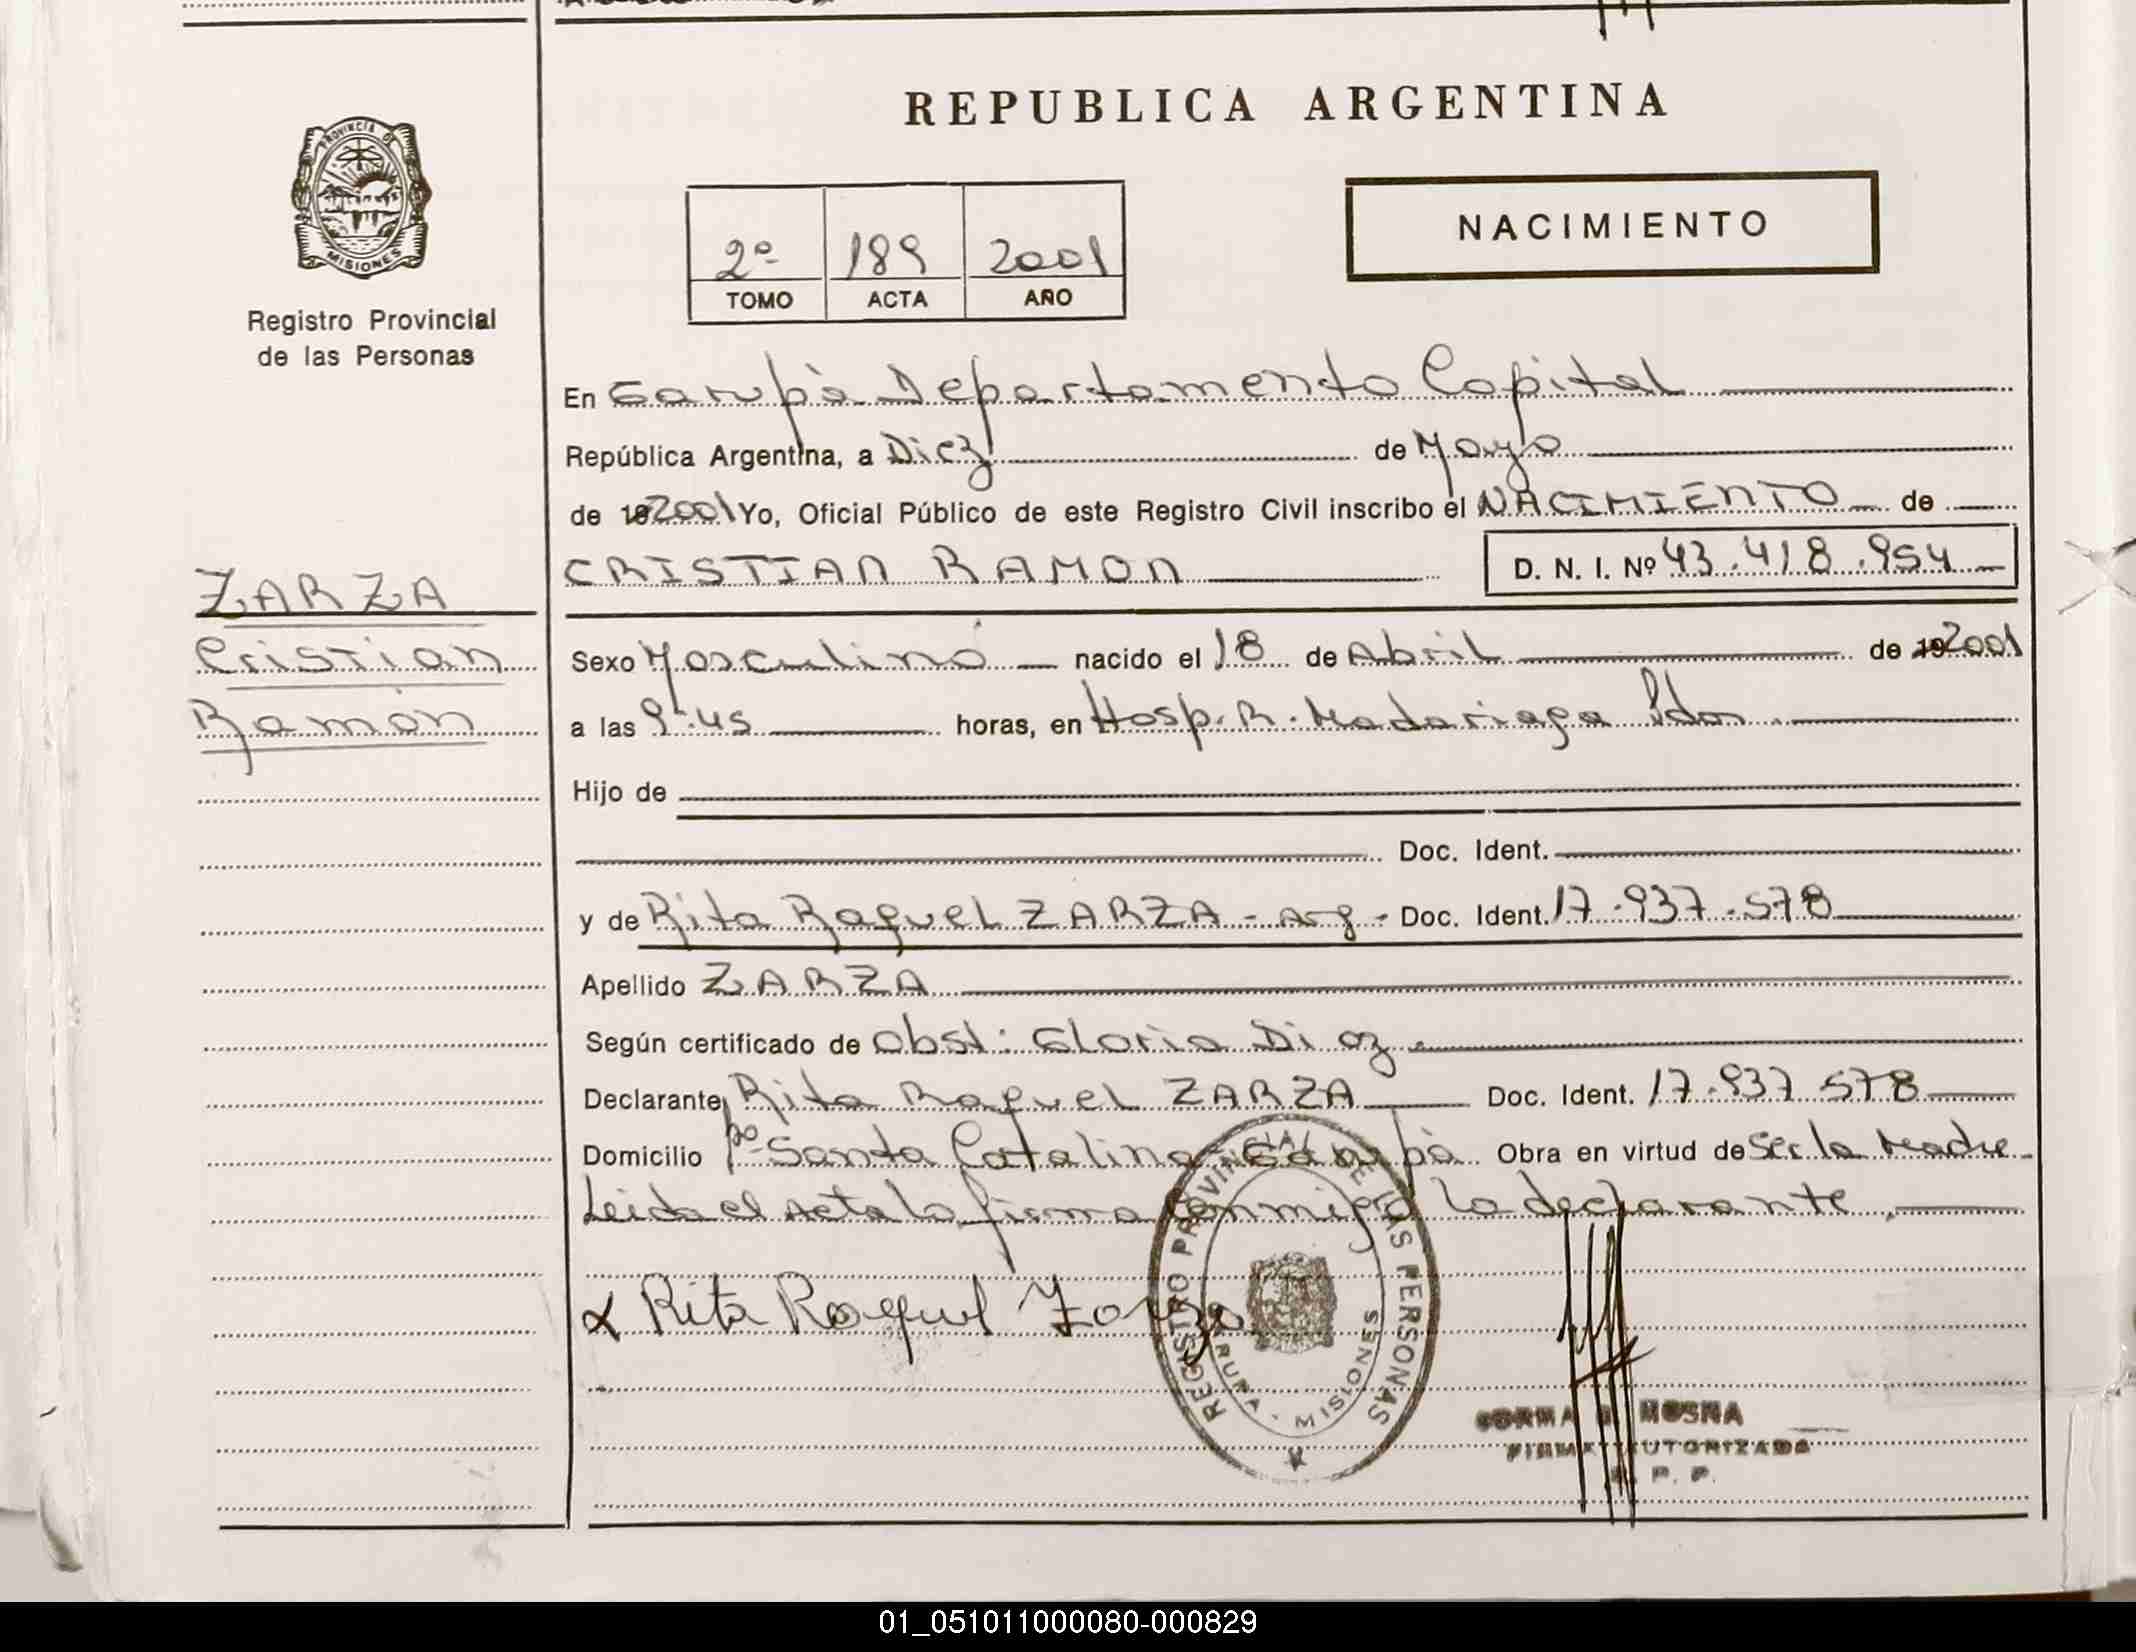 REPUBLICA ARGENTINA
PROVINCIA DE
MISIONES
Registro Provincial
de las Personas
NACIMIENTO
2º 189 2001
TOMO ACTA AÑO
En Garupà Departamento Capital
República Argentina, a Diez de Mayo
de 19 2001 Yo, Oficial Público de este Registro Civil inscribo el NACIMIENTO de
CRISTIAN RAMON D. N. I. Nº 43.418.954
ZARZA
Cristian
Ramon
Sexo Masculino nacido el 18 de Abril de 19 2001
a las 9:45 horas, en Hosp. R. Madariaga Pdas.
Hijo de
Doc. Ident.
y de Rita Raquel ZARZA - Arg - Doc. Ident. 17.937.578
Apellido ZARZA
Según certificado de Obst: Gloria Diaz.
Declarante Rita Raquel ZARZA Doc. Ident. 17.937.578
Domicilio Bº Santa Catalina Garupà Obra en virtud de Ser la Madre
Leida el Acta la firma conmigo la declarante.
Rita Raquel Zarza
REGISTRO PROVINCIAL DE LAS PERSONAS
MISIONES
MOSNA
FIRMA AUTORIZADA
R. P. P.
01_051011000080-000829